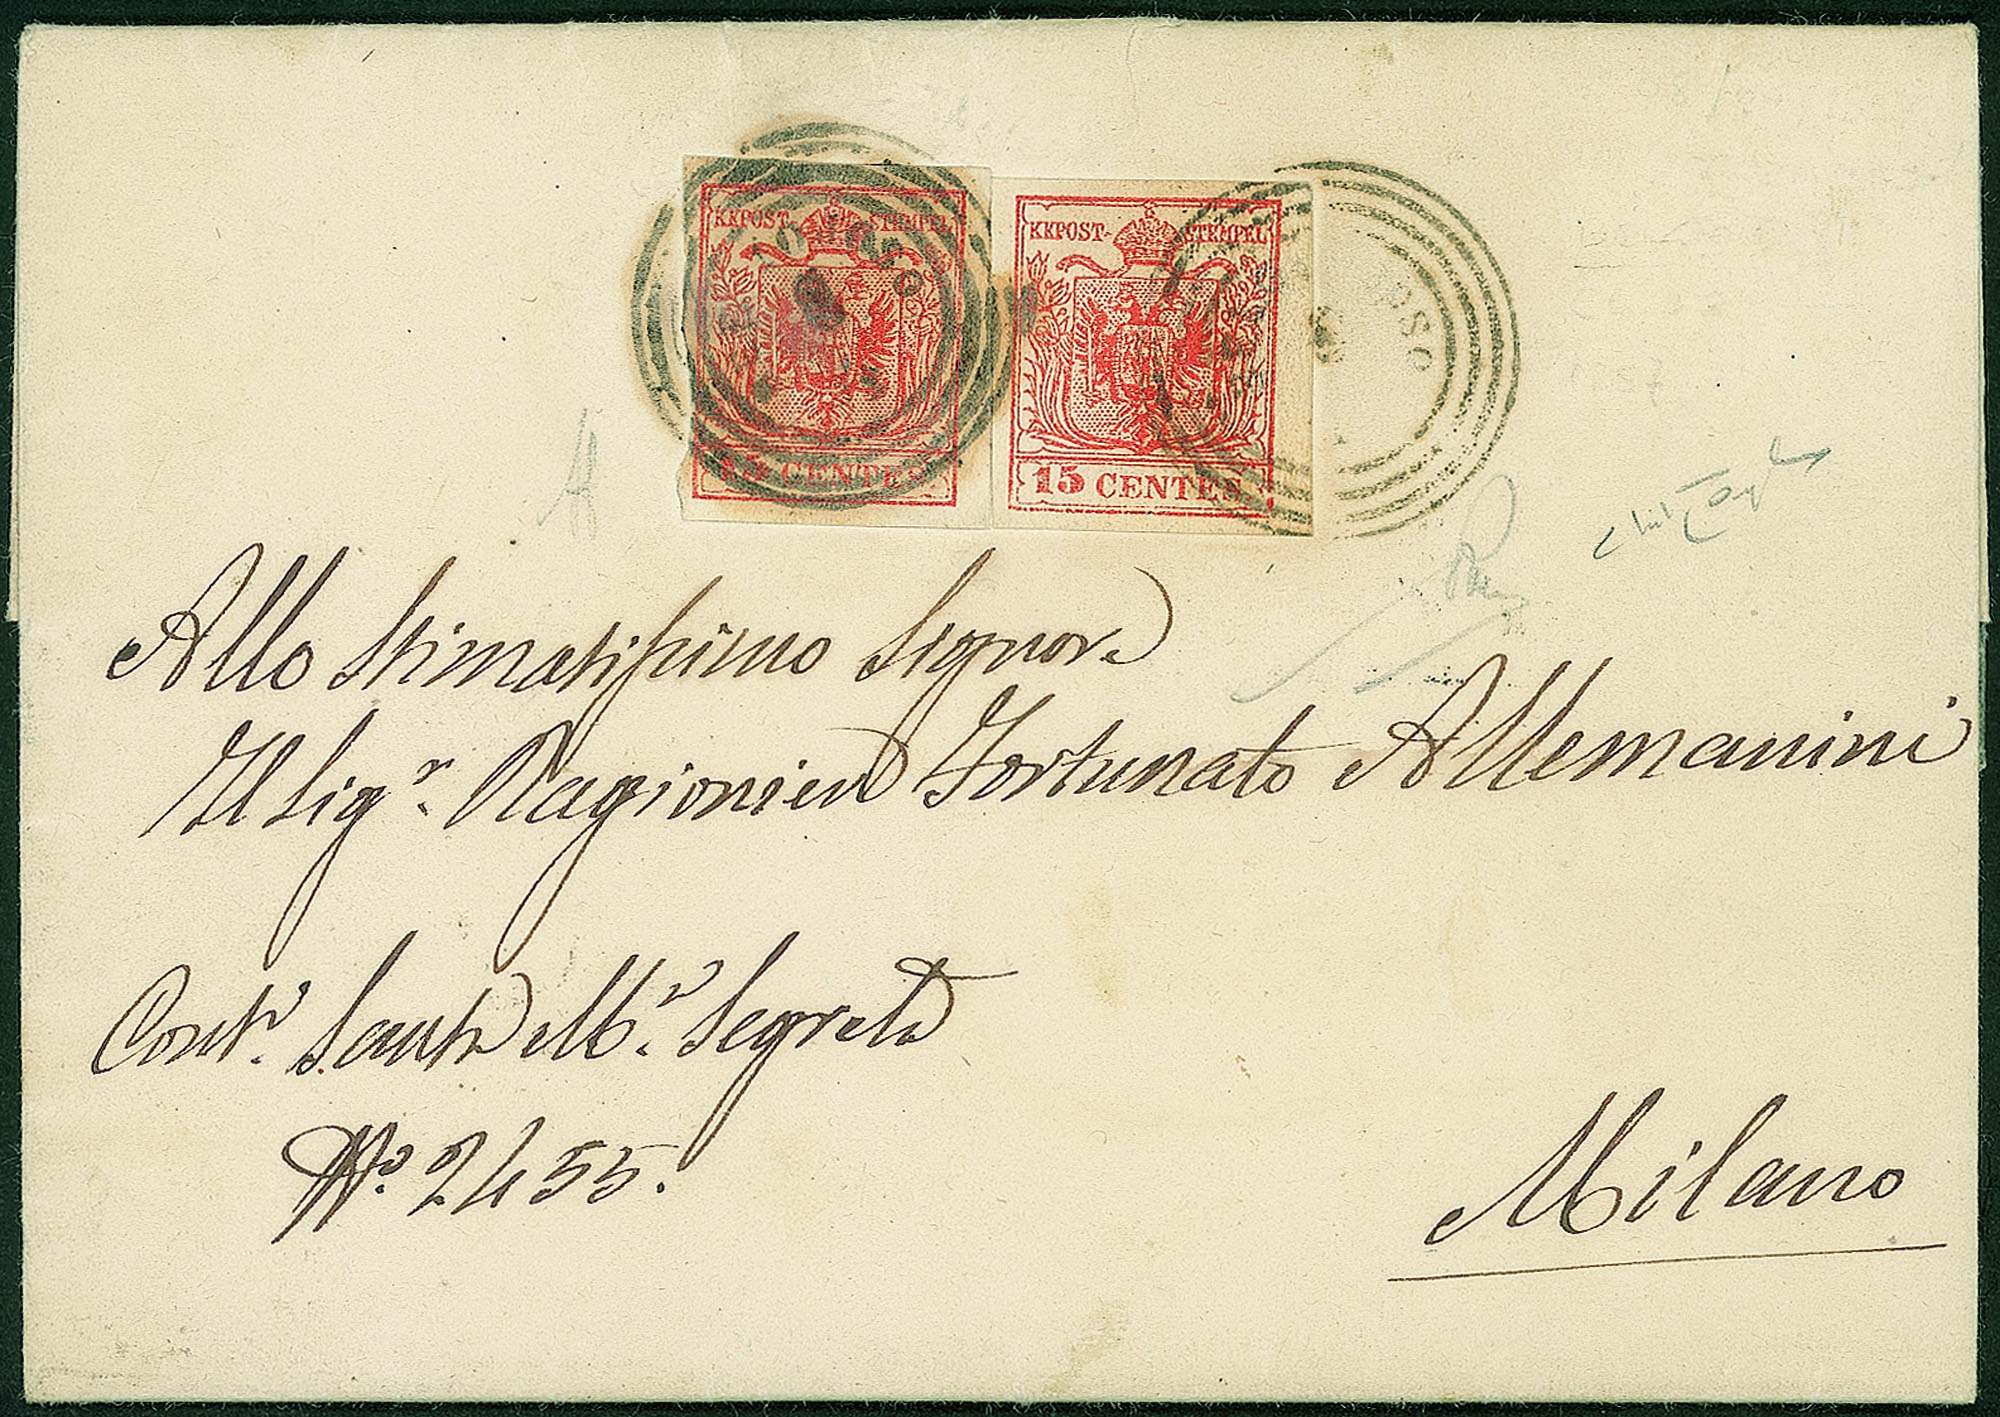 KKPOST- STEMPEL
15 CENTES
KKPOST- STEMPEL
15 CENTES
Allo Stimatissimo Signore
Il Sigr. Ragioniere Fortunato Allemanini
Conta. Santa Ma. Segreta
No. 2455.
Milano